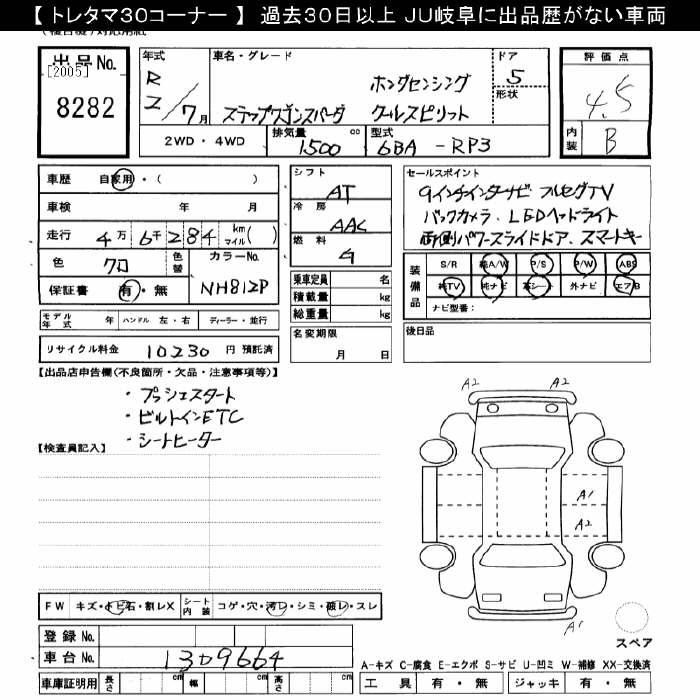 【 トレタマ30コーナー 】 過去30日以上 JU岐阜に出品歴がない車両
出品No. [2005] 8282
年式 R2/7月
車名・グレード ステップワゴンスパーダ ホンダセンシング クールスピリット
ドア 5
形状
2WD・4WD
排気量 1500 cc
型式 6BA-RP3
評価点 4.5
内装 B
車歴 自家用・( )
車検 年 月
走行 4万6千284 km マイル( )
色 クロ
色替
カラーNo. NH812P
保証書 有・無
シフト AT
冷房 AAC
燃料 G
乗車定員 名
積載量 kg
総重量 kg
名変期限 月 日
セールスポイント
9インチインターナビ フルセグTV
バックカメラ、LEDヘッドライト
両側パワースライドドア、スマートキー
装備品 S/R 純A/W P/S P/W ABS
純TV 純ナビ 革シート 外ナビ エアB
ナビ型番:
後日品
モデル年式 年 ハンドル 左・右 ディーラー・並行
リサイクル料金 10230 円 預託済
【出品店申告欄(不良箇所・欠品・注意事項等)】
・プッシュスタート
・ビルトインETC
・シートヒーター
【検査員記入】
A2 A2
A1
A2
A1
スペア
FW キズ・トビ石・割レX シート内装 コゲ・穴・汚レ・シミ・破レ・スレ
登録No.
車台No. 1309664
A-キズ C-腐食 E-エクボ S-サビ U-凹ミ W-補修 XX-交換済
車庫証明用 長さ cm 幅 cm 高さ cm
工具 有・無 ジャッキ 有・無